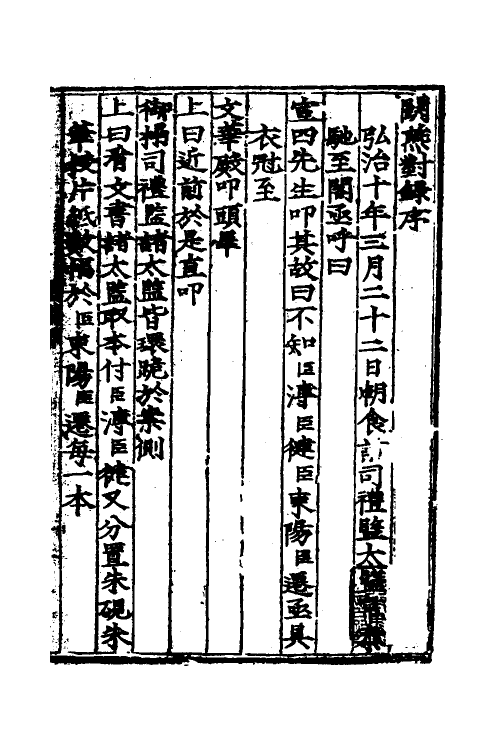 閣燕對錄序
弘治十年三月二十二日朝食訖司禮監太監韋泰
馳至閣亟呼曰
宣四先生叩其故曰不知臣溥臣健臣東陽臣遷亟具
衣冠至
文華殿叩頭畢
上曰近前於是直叩
御榻司禮監諸太監皆環跪於案側
上曰看文書諸太監取本付臣溥臣健又分置朱硯朱
筆授片紙數幅於臣東陽臣遷每一本